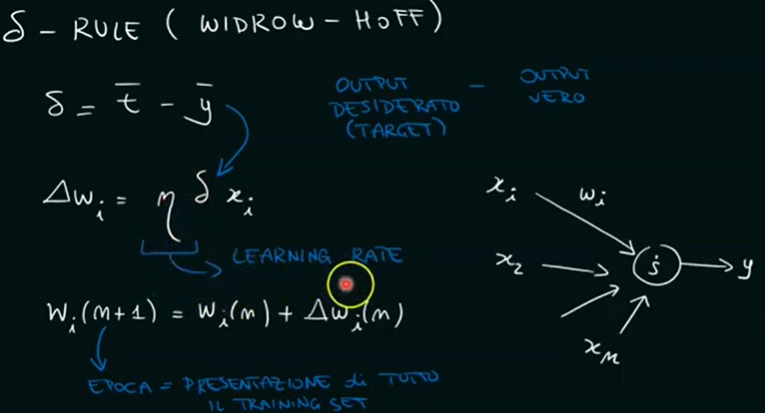 δ - RULE ( WIDROW - HOFF )
δ = t̄ - ȳ
OUTPUT DESIDERATO (TARGET) - OUTPUT VERO
Δwi = η δ xi
LEARNING RATE
Wi(n+1) = Wi(n) + Δwi(n)
EPOCA = PRESENTAZIONE di TUTTO
IL TRAINING SET
xi wi
x2 j y
xn